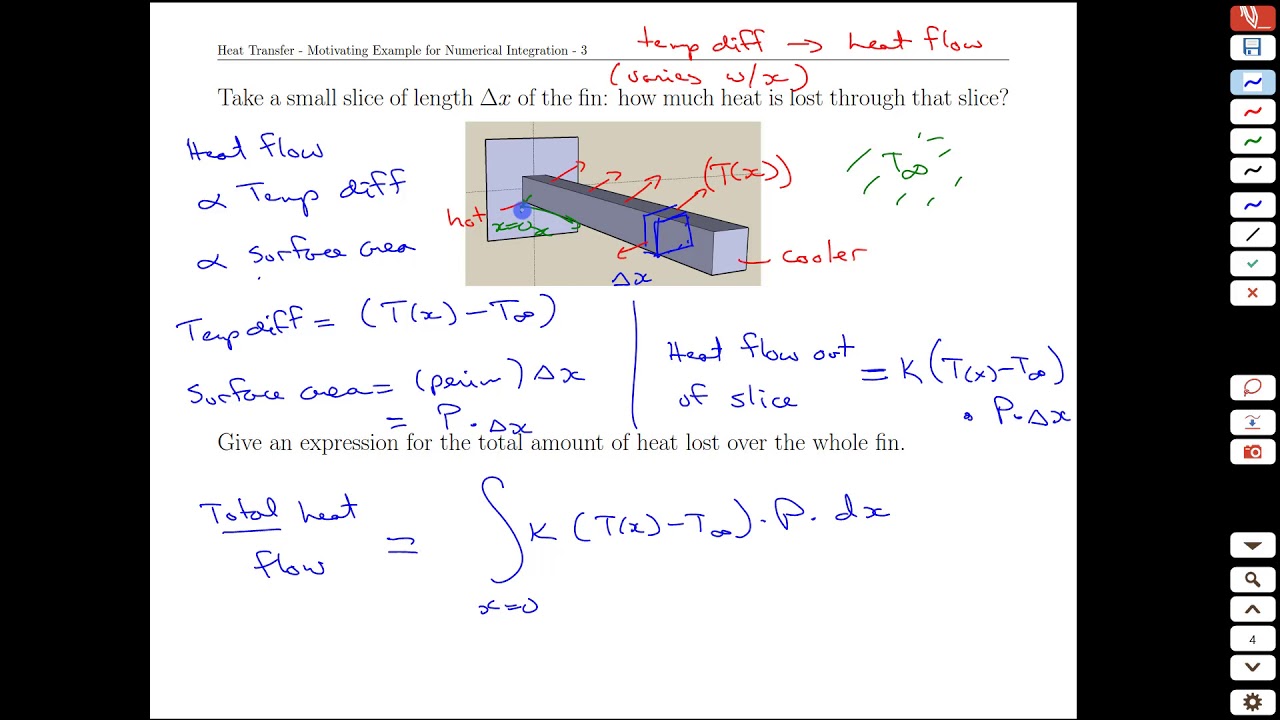 Heat Transfer - Motivating Example for Numerical Integration - 3
temp diff → heat flow
(varies w/x)
Take a small slice of length Δx of the fin: how much heat is lost through that slice?
Heat flow
∝ Temp diff
∝ Surface area
hot
x=0
x
(T(x))
T∞
cooler
Δx
Temp diff = (T(x) - T∞)
Surface area = (perim) Δx
= P · Δx
Heat flow out
of slice
= K (T(x) - T∞)
· P · Δx
Give an expression for the total amount of heat lost over the whole fin.
Total heat
flow
= ∫ K (T(x) - T∞) · P · dx
x=0
4